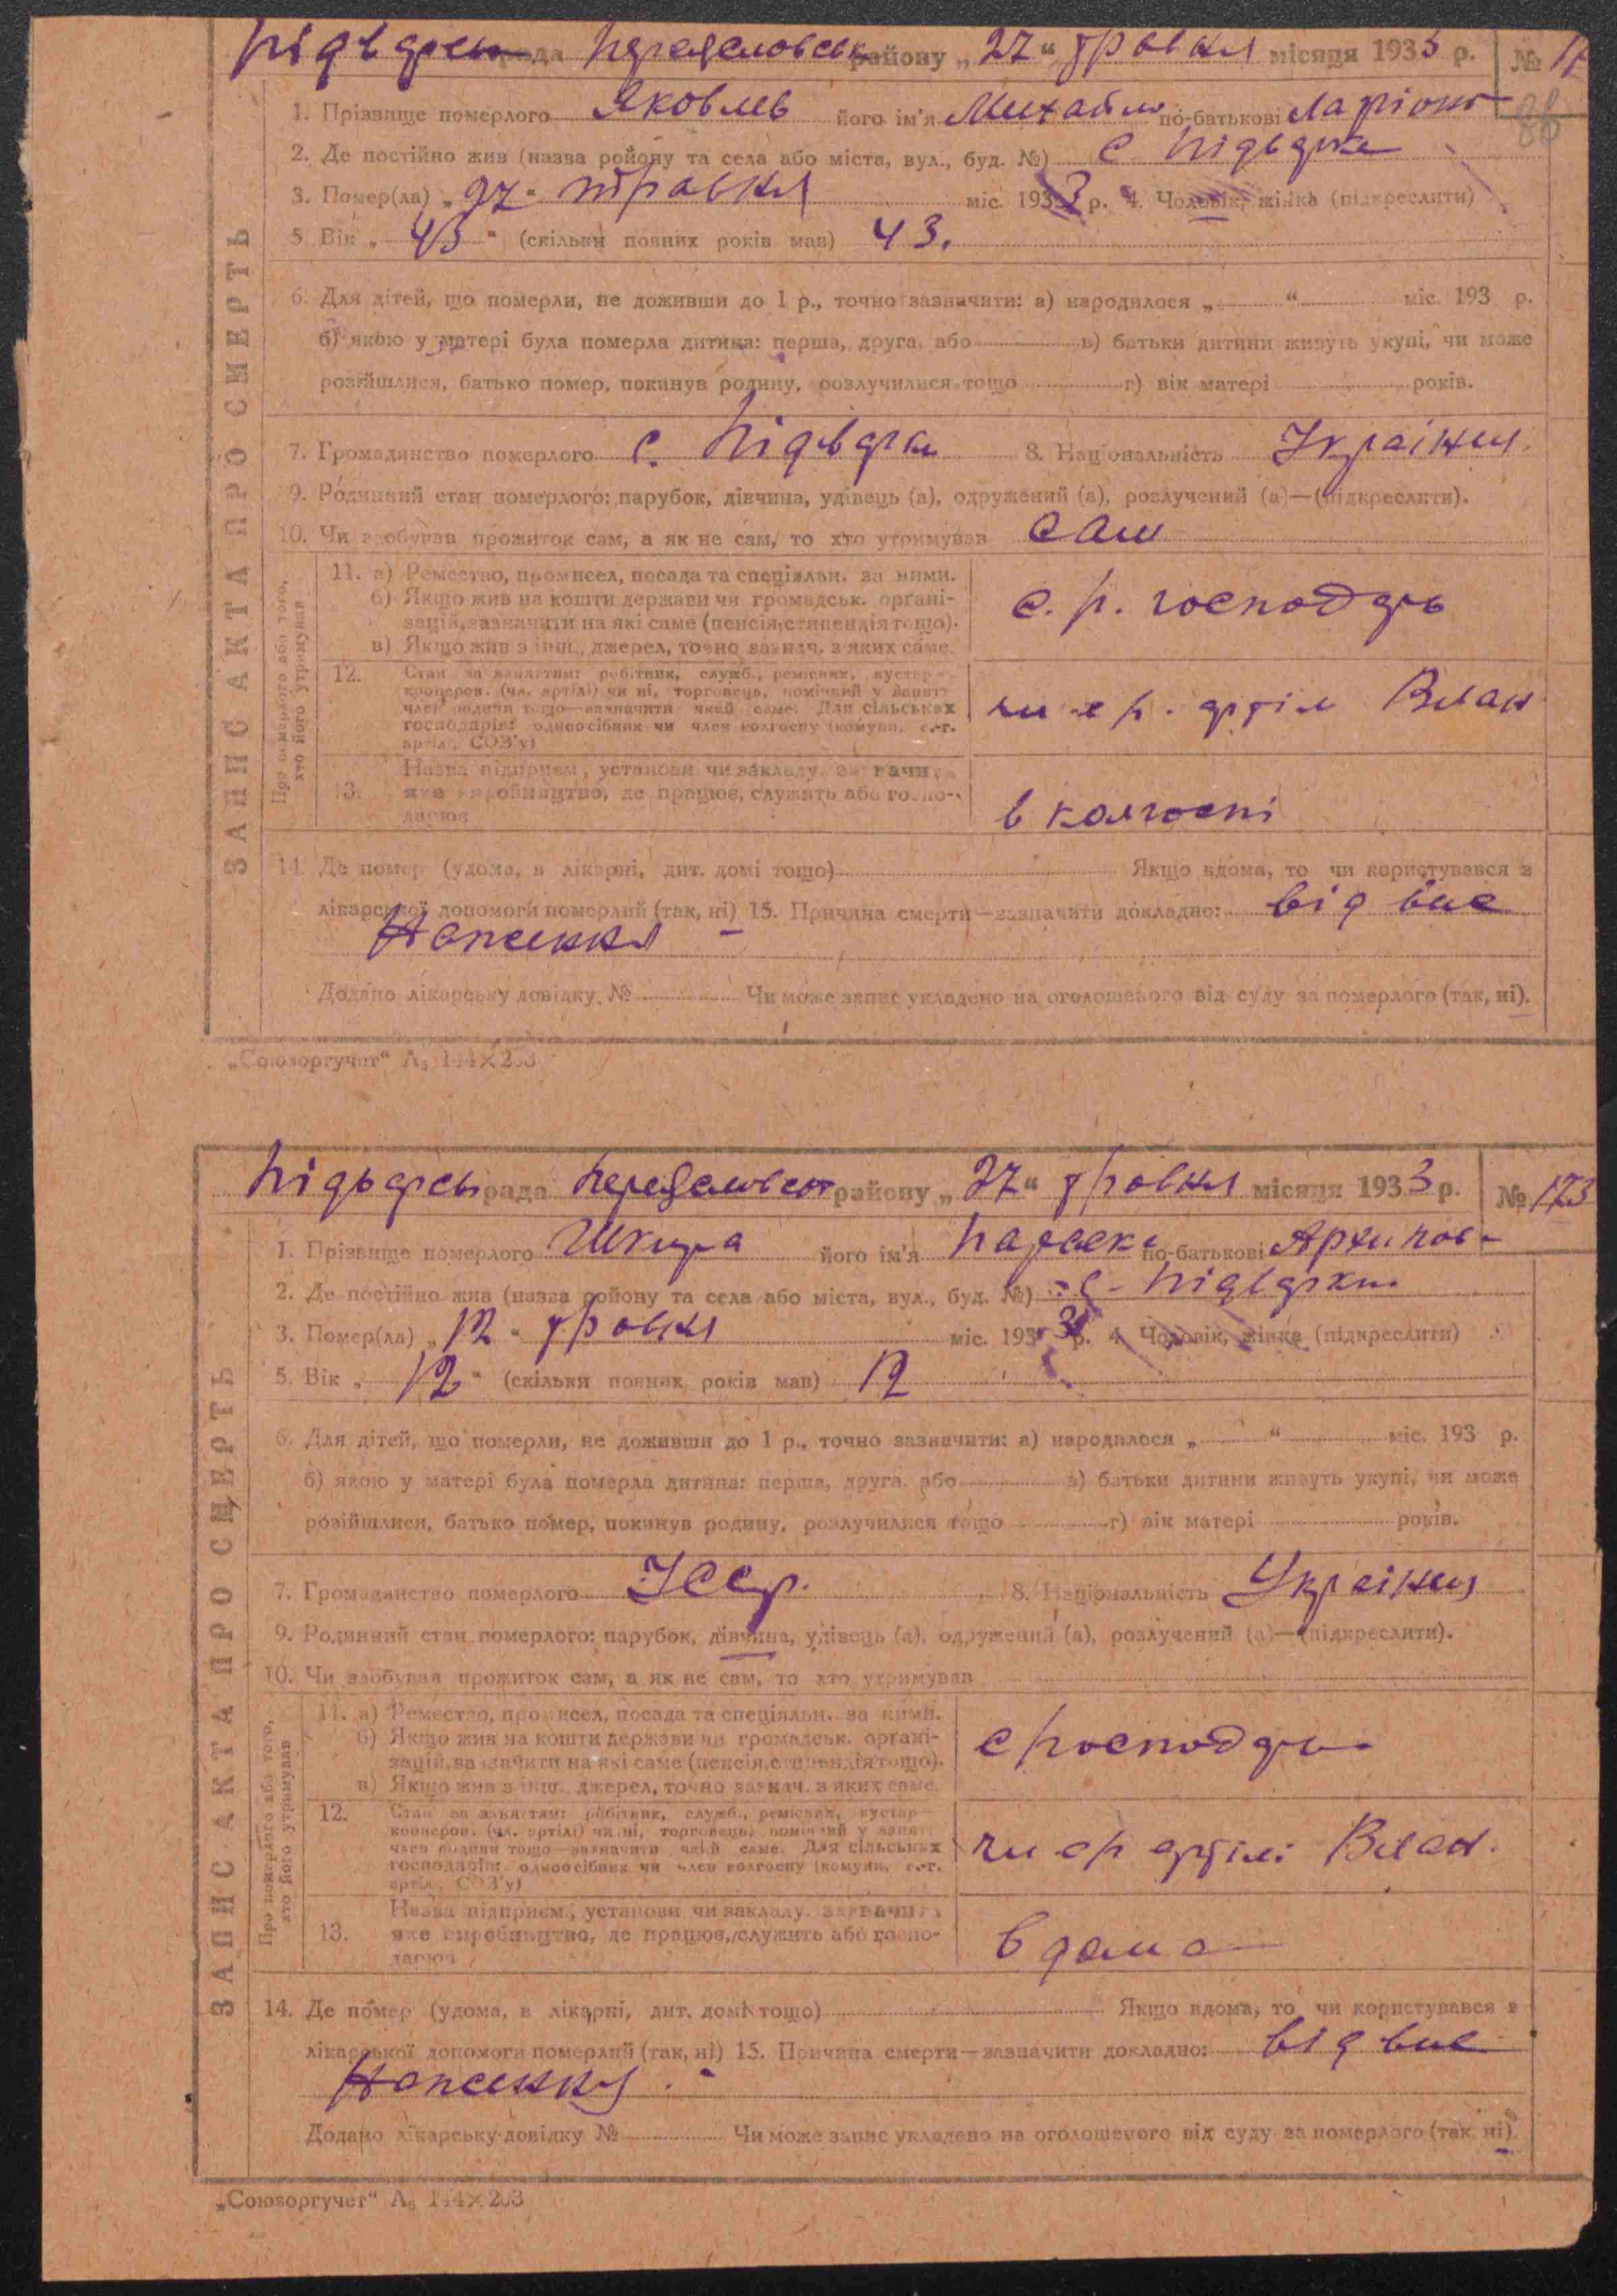 рада району „27“ травня місяця 1933 р. №
1. Прізвище померлого Яковлев його ім'я Михайло по-батькові
2. Де постійно жив (назва ройону та села або міста, вул., буд. №) с
3. Помер(ла) „27“ травня міс. 1933 р. 4. Чоловік, жінка (підкреслити)
5. Вік „43“ (скільки повних років мав) 43.
6. Для дітей, що померли, не доживши до 1 р., точно зазначити: а) народилося „ “ міс. 193 р.
б) якою у матері була померла дитина: перша, друга, або в) батьки дитини живуть укупі, чи може
розійшлися, батько помер, покинув родину, розлучилися тощо г) вік матері років.
7. Громадянство померлого с. 8. Національність
9. Родинний стан померлого: парубок, дівчина, удівець (а), одружений (а), розлучений (а)—(підкреслити).
10. Чи здобував прожиток сам, а як не сам, то хто утримував сам
ЗАПИС АКТА ПРО СМЕРТЬ
Про померлого або того, хто його утримував
11. а) Ремество, промисел, посада та спеціяльн. за ними.
б) Якщо жив на кошти держави чи громадськ. органі-
зацій, зазначити на які саме (пенсія, стипендія тощо).
в) Якщо жив з інш., джерел, точно зазнач. з яких саме.
12. Стан за заняттям: робітник, служб., ремісник, кустар—
кооперов. (чл. артілі) чи ні, торговець, помічний у занятт
член родини тощо—зазначити який саме. Для сільських
господарів: одноосібник чи член колгоспу (комуни, с.-г.
артілі, СОЗ'у)
13. Назва підприєм., установи чи закладу, зазначити
яке виробництво, де працює, служить або госпо-
дарює
в колгоспі
14. Де помер (удома, в лікарні, дит. домі тощо) Якщо вдома, то чи користувався з
лікарської допомоги померлий (так, ні) 15. Причина смерти—зазначити докладно: від вис
наження
Додано лікарську довідку № Чи може запис укладено на оголошеного від суду за померлого (так, ні).
„Союзоргучет“ А₅ 144×203
рада району „27“ травня місяця 1933 р. № 173
1. Прізвище померлого Шкура його ім'я Параска по-батькові Архипов
2. Де постійно жив (назва ройону та села або міста, вул., буд. №) с
3. Помер(ла) „12“ травня міс. 1933 р. 4. Чоловік, жінка (підкреслити)
5. Вік „12“ (скільки повних років мав) 12
6. Для дітей, що померли, не доживши до 1 р., точно зазначити: а) народилося „ “ міс. 193 р.
б) якою у матері була померла дитина: перша, друга, або в) батьки дитини живуть укупі, чи може
розійшлися, батько помер, покинув родину, розлучилися тощо г) вік матері років.
7. Громадянство померлого Усср. 8. Національність
9. Родинний стан померлого: парубок, дівчина, удівець (а), одружений (а), розлучений (а)—(підкреслити).
10. Чи здобував прожиток сам, а як не сам, то хто утримував
ЗАПИС АКТА ПРО СМЕРТЬ
Про померлого або того, хто його утримував
11. а) Ремество, промисел, посада та спеціяльн. за ними.
б) Якщо жив на кошти держави чи громадськ. органі-
зацій, зазначити на які саме (пенсія, стипендія тощо).
в) Якщо жив з інш., джерел, точно зазнач. з яких саме.
12. Стан за заняттям: робітник, служб., ремісник, кустар—
кооперов. (чл. артілі) чи ні, торговець, помічний у занятт
член родини тощо—зазначити який саме. Для сільських
господарів: одноосібник чи член колгоспу (комуни, с.-г.
артілі, СОЗ'у)
13. Назва підприєм., установи чи закладу, зазначити
яке виробництво, де працює, служить або госпо-
дарює
вдома
14. Де помер (удома, в лікарні, дит. домі тощо) Якщо вдома, то чи користувався з
лікарської допомоги померлий (так, ні) 15. Причина смерти—зазначити докладно: від вис
наження
Додано лікарську довідку № Чи може запис укладено на оголошеного від суду за померлого (так, ні).
„Союзоргучет“ А₅ 144×203